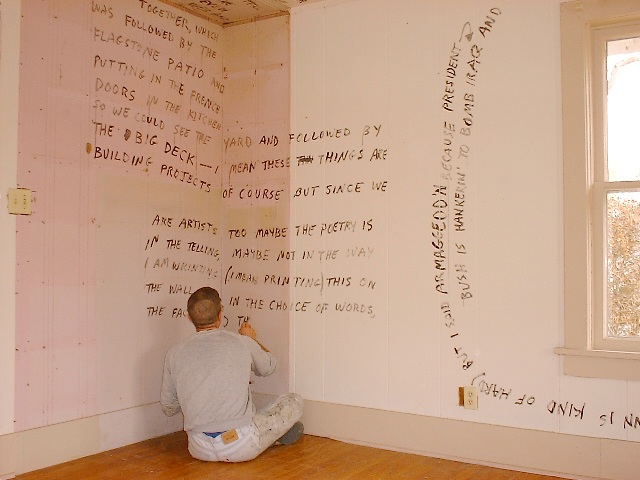 TOGETHER, WHICH
WAS FOLLOWED BY THE
FLAGSTONE PATIO AND
PUTTING IN THE FRENCH
DOORS IN THE KITCHEN
SO WE COULD SEE THE
THE BIG DECK — I
BUILDING PROJECTS
YARD AND FOLLOWED BY
MEAN THESE THINGS ARE
OF COURSE BUT SINCE WE
ARE ARTISTS TOO MAYBE THE POETRY IS
IN THE TELLING, MAYBE NOT IN THE WAY
I AM WRINTING (I MEAN PRINTING) THIS ON
THE WALL IN THE CHOICE OF WORDS,
THE TH
NN IS KIND OF HARD) BUT I SAID ARMAGGEDDN BECAUSE PRESIDENT
BUSH IS HANKERIN' TO BOMB IRAQ AND